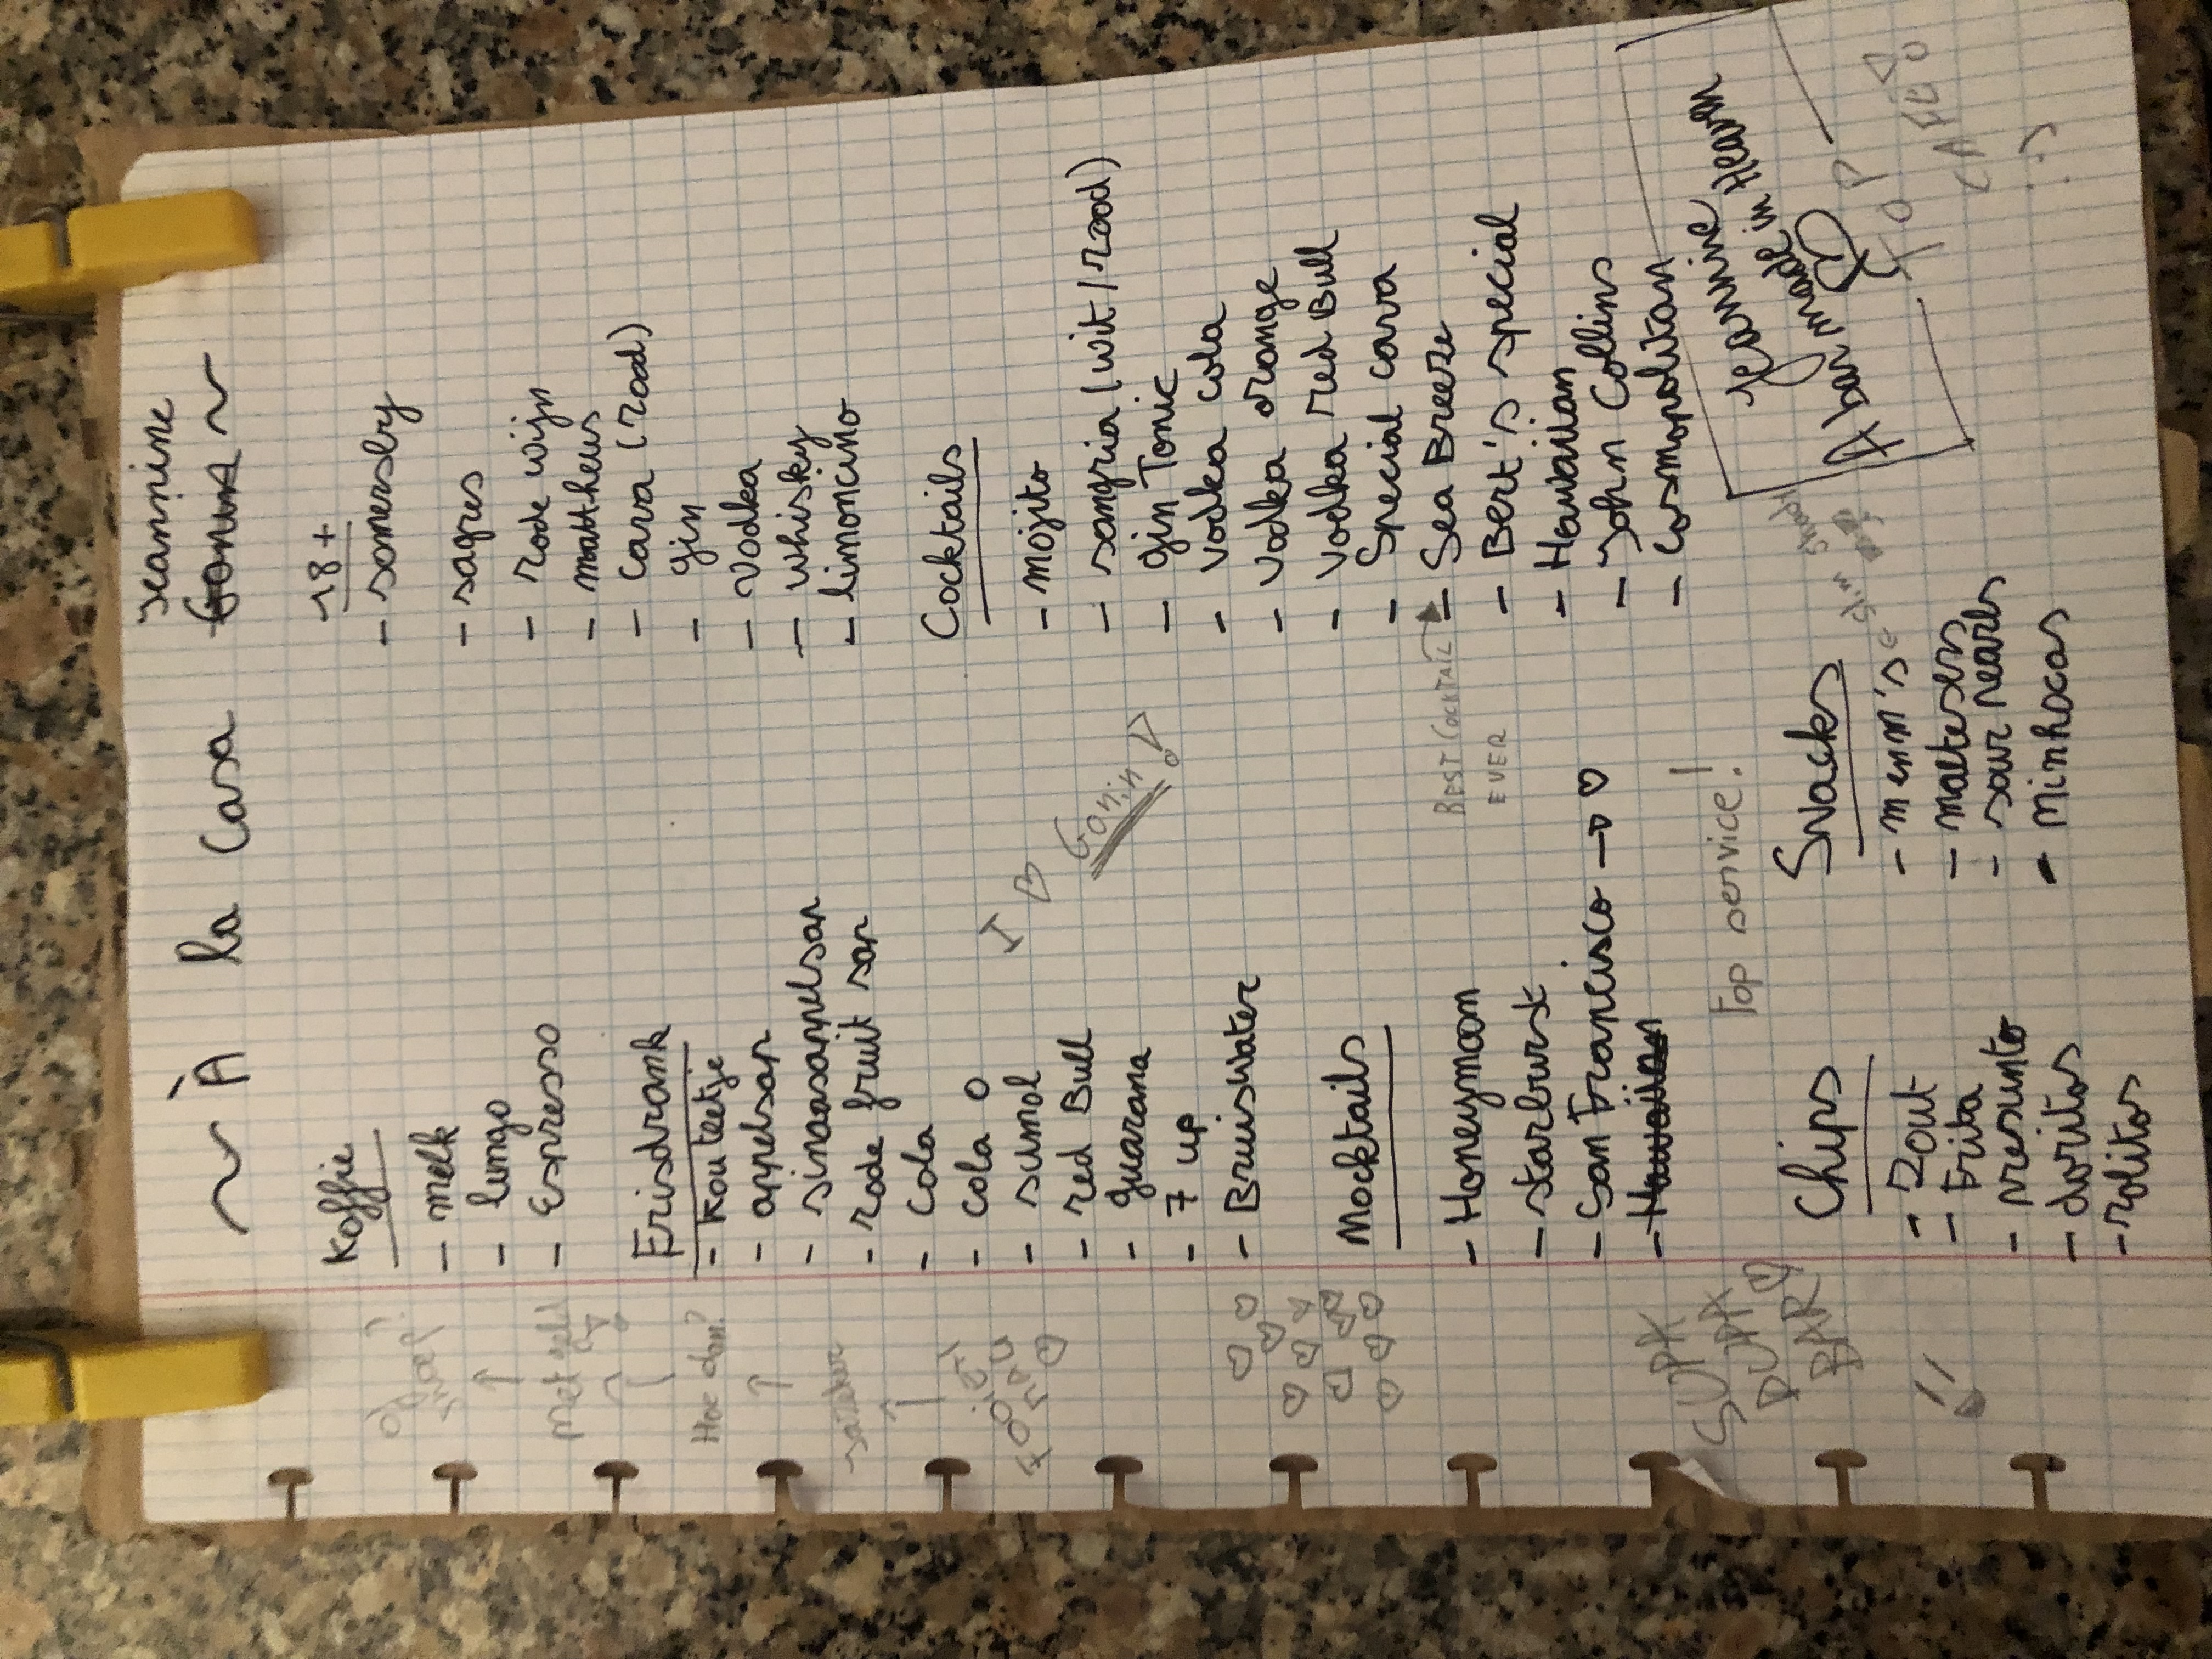 Jeannine
~ À la Casa Gonina ~
Koffie
- melk
- lungo
- Espresso
Frisdrank
- Kou teetje
- appelsap
- sinaasappelsap
- rode fruit sap
- Cola
- Cola 0
- sumol
- red Bull
- guarana
- 7 up
- Bruiswater
Mocktails
- Honeymoon
- starburst
- San Francisco → ♡
- Hawaiian
Top service!
Chips
- Zout
- Frita
- presunto
- doritos
- rolitos
-18+
- somersby
- sagres
- rode wijn
- mattheus
- Cava (rood)
- gin
- Vodka
- Whisky
- limoncino
Cocktails
- mojito
- sangria (wit/rood)
- gin Tonic
- vodka cola
- vodka orange
- vodka red Bull
- Special cava
- Sea Breeze
- Bert's special
- Hawaiian
- John Collins
- Cosmopolitan
BEST COCKTAIL
EVER
I ♡
Gonin!
Snacks
- m en m's
- maltesers
- sour pearls
- Minhocas
Jeannine
A bar made in Heaven
TOP
:-)
met geld
Hoe dan?
SUPER
BAR